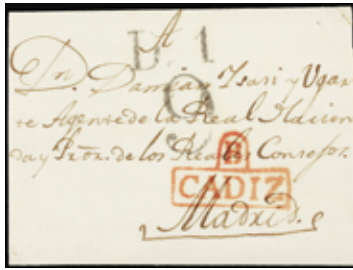 A
D.n Damian Isari y Ugar
te Agente de la Real Hacien
da y Prõr. de los Reales Consejos.
B
CADIZ
Madrid.
9